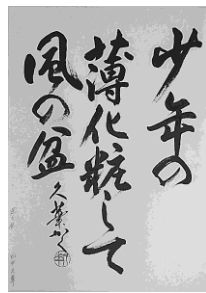 少年の
薄化粧して
風の盆
久葉かく